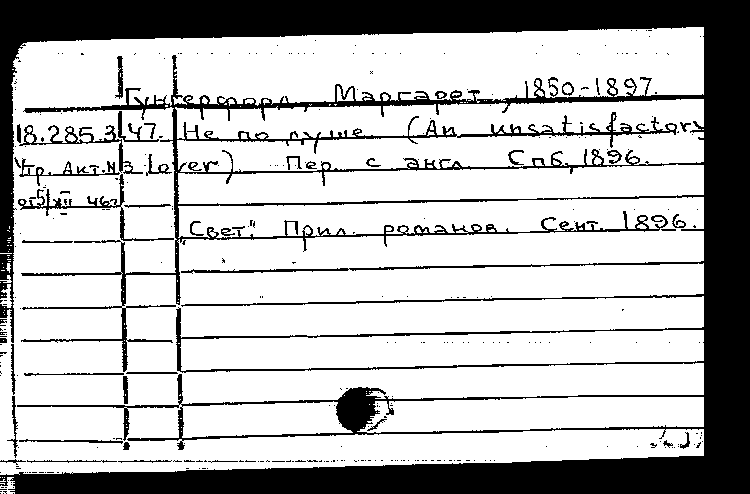 Гунгерфорд, Маргарет, 1850-1897.
18.285.3.47. Не по душе (An unsatisfactory
Утр. Акт. №3 lover) Пер. с англ. Спб, 1896.
от 5/XII 46г
"Свет". Прил. романов. Сент. 1896.